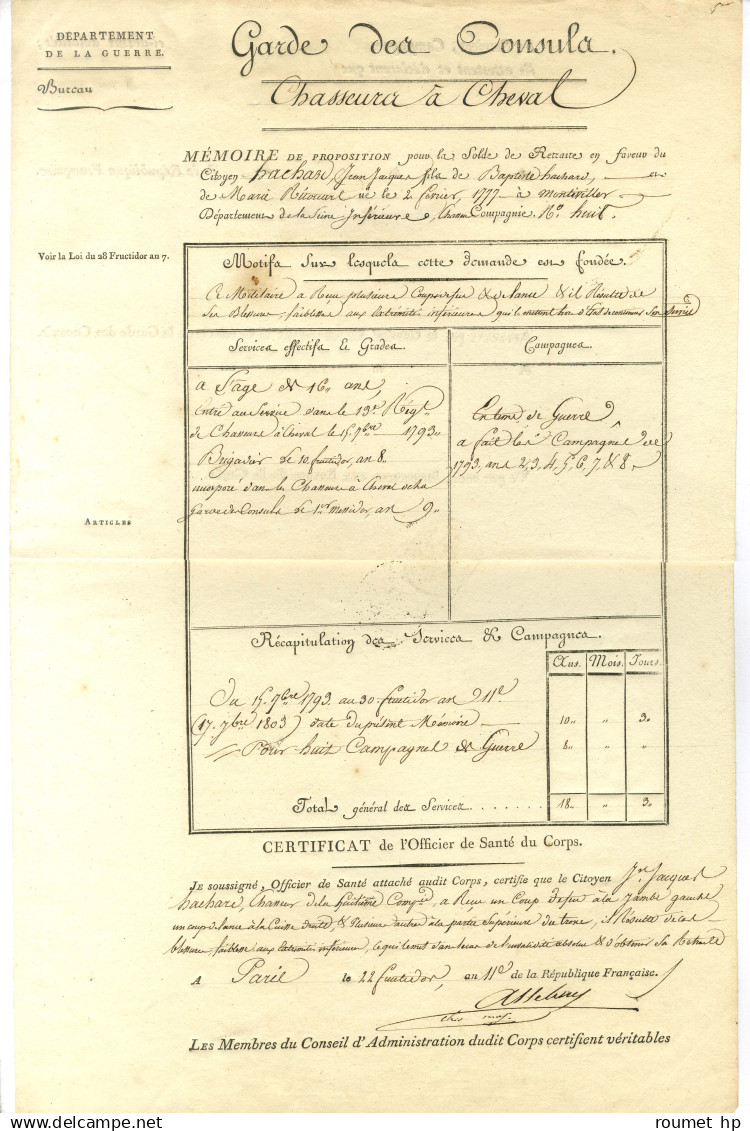 DÉPARTEMENT
DE LA GUERRE.
Bureau
Garde des Consuls.
Chasseurs à Cheval
MÉMOIRE DE PROPOSITION pour la Solde de Retraite en faveur du
Citoyen hachard Jean Jacques fils de Baptiste hachard, et
de Marie né le 2 fevrier, 1777 à montiviller
Département de la Seine Inférieure, Chasseur Compagnie, No. huit.
Voir la Loi du 28 Fructidor an 7.
Motifs sur lesquels cette demande est fondée.
Ce Militaire a Reçu plusieurs Coups de feu & de lance & il Résulte de
Ses Blessures, faiblesse aux extrémités inférieures qui le mettent hors d'Etat de continuer Son Service
Services effectifs & Grades
Campagnes
a l'age de 16 ans,
Entré au Service dans le 13e. Régt.
de Chasseurs à Cheval le 15. 7bre 1793.
Brigadier le 10 fructidor, an 8
incorporé dans les Chasseurs à Cheval de la
Garde des Consuls le 1er messidor, an 9
En tems de Guerre,
a fait les Campagnes de
1793, ans 2, 3, 4, 5, 6, 7, & 8,
ARTICLES
Récapitulation des Services & Campagnes.
Ans. Mois. Jours.
Du 15. 7bre 1793. au 30. fructidor an 11e.
(17. 7bre 1803) date du présent Mémoire 10 " 3
Pour huit Campagnes de Guerre 8 " "
Total général des Services . . . . . . 18 " 3
CERTIFICAT de l'Officier de Santé du Corps.
JE soussigné, Officier de Santé attaché audit Corps, certifie que le Citoyen Jn. Jacques
hachard, Chasseur de la huitième Compie, a Reçu un Coup de feu à la Jambe gauche
un coup de lance à la Cuisse droite, & Plusieurs autres à la partie Supérieure du tronc, il Résulte de ces
blessures, faiblesse aux extremités inférieures, ce qui le met dans le cas de l'invalidité absolue & d'obtenir Sa Retraite
A Paris le 22 fructidor, an 11e de la République Française.
LES MEMBRES du Conseil d'Administration dudit Corps certifient véritables
roumet hp
www.delcampe.net